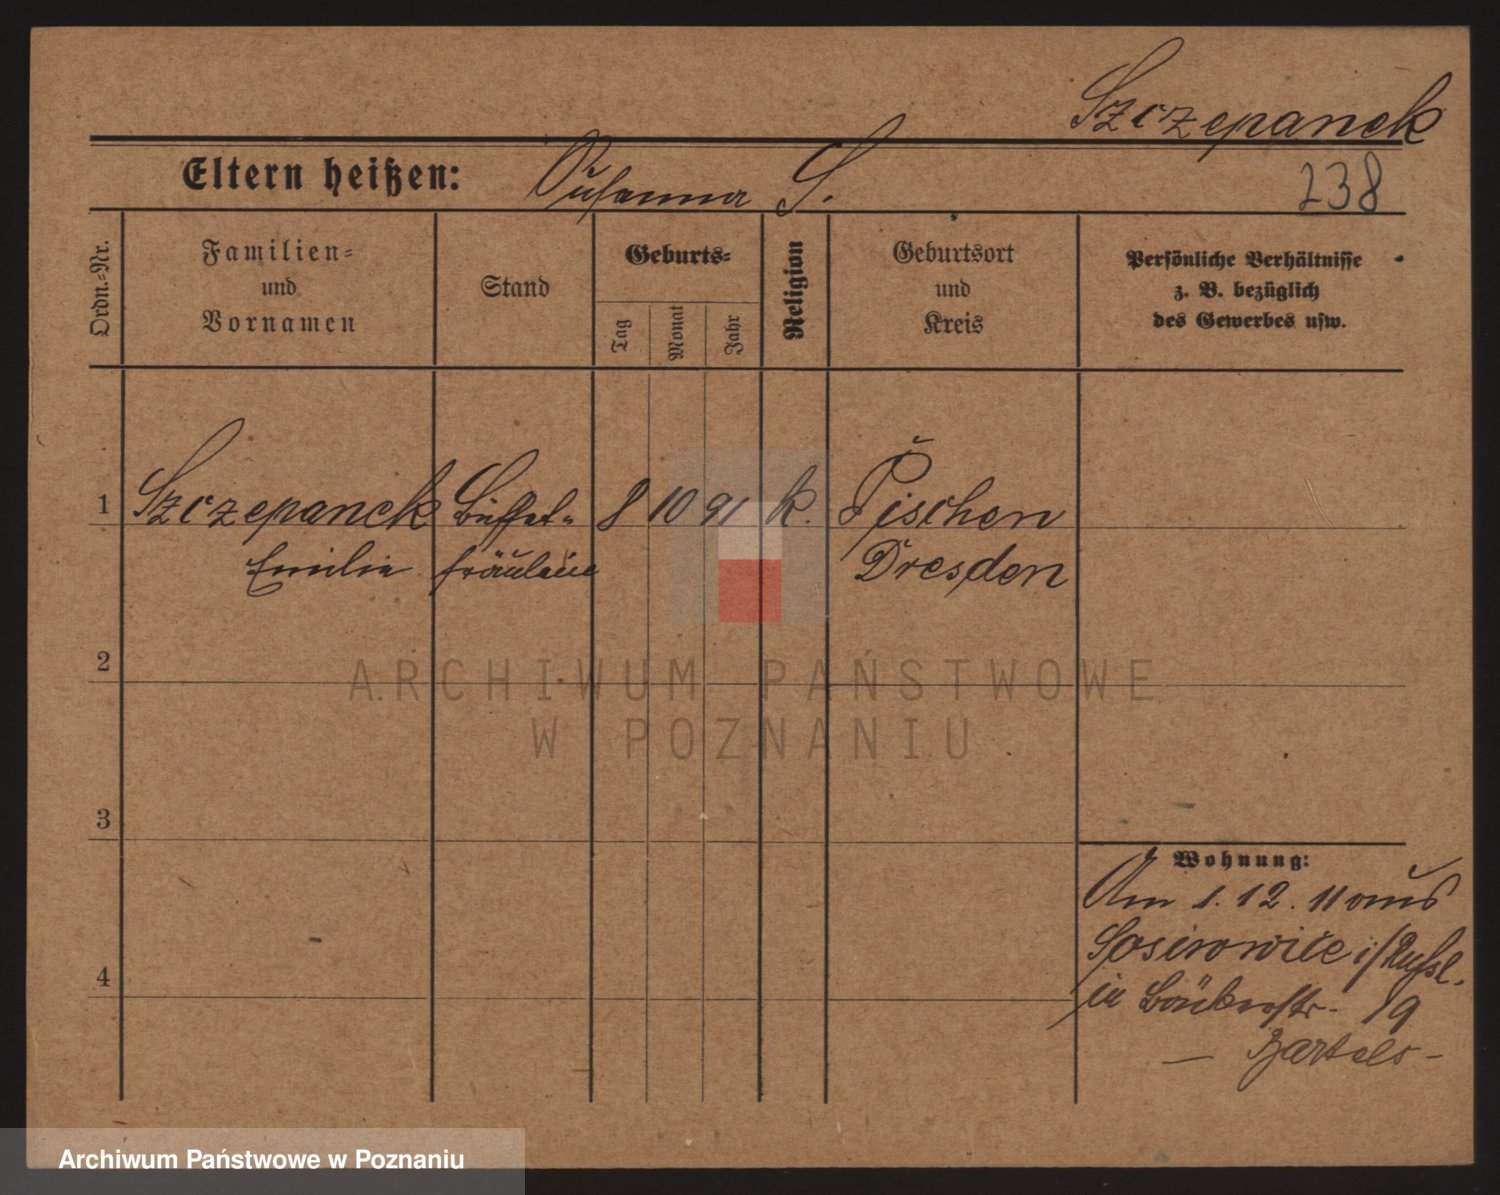 Szczepanek
Eltern heißen: Susanna S. 238
Ordn.-Nr.
Familien-
und
Vornamen
Stand
Geburts-
Tag
Monat
Jahr
Religion
Geburtsort
und
Kreis
Persönliche Verhältnisse
z. B. bezüglich
des Gewerbes usw.
1 Szczepanek Büffet- 8 10 91 k. Pischen
Emilie fräulein Dresden
2
ARCHIWUM PAŃSTWOWE
W POZNANIU
3
Wohnung:
Am 1. 12. 11 aus
Sosnowice i/Russl.
4
in 19
— Bartels -
Archiwum Państwowe w Poznaniu